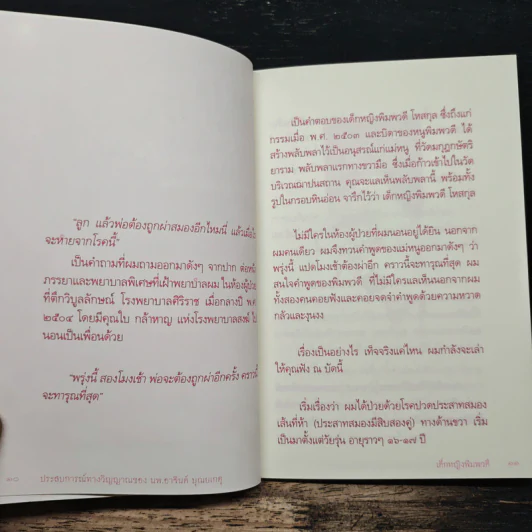 "ลูก แล้วพ่อต้องถูกผ่าสมองอีกไหมนี่ แล้วเมื่อไร
จะหายจากโรคนี้"
เป็นคำถามที่ผมถามออกมาดังๆ จากปาก ต่อหน้า
ภรรยาและพยาบาลพิเศษที่เฝ้าพยาบาลผม ในห้องผู้ป่วย
ที่ตึกวิบูลลักษณ์ โรงพยาบาลศิริราช เมื่อกลางปี พ.ศ.
๒๕๐๔ โดยมีคุณใบ กล้าหาญ แห่งโรงพยาบาลสงฆ์
นอนเป็นเพื่อนด้วย
"พรุ่งนี้ สองโมงเช้า พ่อจะต้องถูกผ่าอีกครั้ง คราวนี้
จะทารุณที่สุด"
๑๐ ประสบการณ์ทางวิญญาณของ นพ.อาจินต์ บุณยเกตุ
เป็นคำตอบของเด็กหญิงพิมพวดี โหสกุล ซึ่งถึงแก่
กรรมเมื่อ พ.ศ. ๒๕๐๓ และบิดาของหนูพิมพวดี ได้
สร้างพลับพลาไว้เป็นอนุสรณ์แก่แม่หนู ที่วัดมกุฎกษัตริ
ยาราม พลับพลาแรกทางขวามือ ซึ่งเมื่อก้าวเข้าไปในวัด
บริเวณฌาปนสถาน คุณจะแลเห็นพลับพลานี้ พร้อมทั้ง
รูปในกรอบหินอ่อน จารึกไว้ว่า เด็กหญิงพิมพวดี โหสกุล
ไม่มีใครในห้องผู้ป่วยที่ผมนอนอยู่ได้ยิน นอกจาก
ผมคนเดียว ผมจึงทวนคำพูดของแม่หนูออกมาดังๆ ว่า
พรุ่งนี้ แปดโมงเช้าต้องผ่าอีก คราวนี้จะทารุณที่สุด ผม
สนใจคำพูดของพิมพวดี ที่ไม่มีใครแลเห็นนอกจากผม
ทั้งสองคนคอยฟังและคอยจดจำคำพูดด้วยความหวาด
กลัวและงุนงง
เรื่องเป็นอย่างไร เท็จจริงแค่ไหน ผมกำลังจะเล่า
ให้คุณฟัง ณ บัดนี้
เริ่มเรื่องว่า ผมได้ป่วยด้วยโรคปวดประสาทสมอง
เส้นที่ห้า (ประสาทสมองมีสิบสองคู่) ทางด้านขวา เริ่ม
เป็นมาตั้งแต่วัยรุ่น อายุราวๆ ๑๖-๑๗ ปี
เด็กหญิงพิมพวดี ๑๑